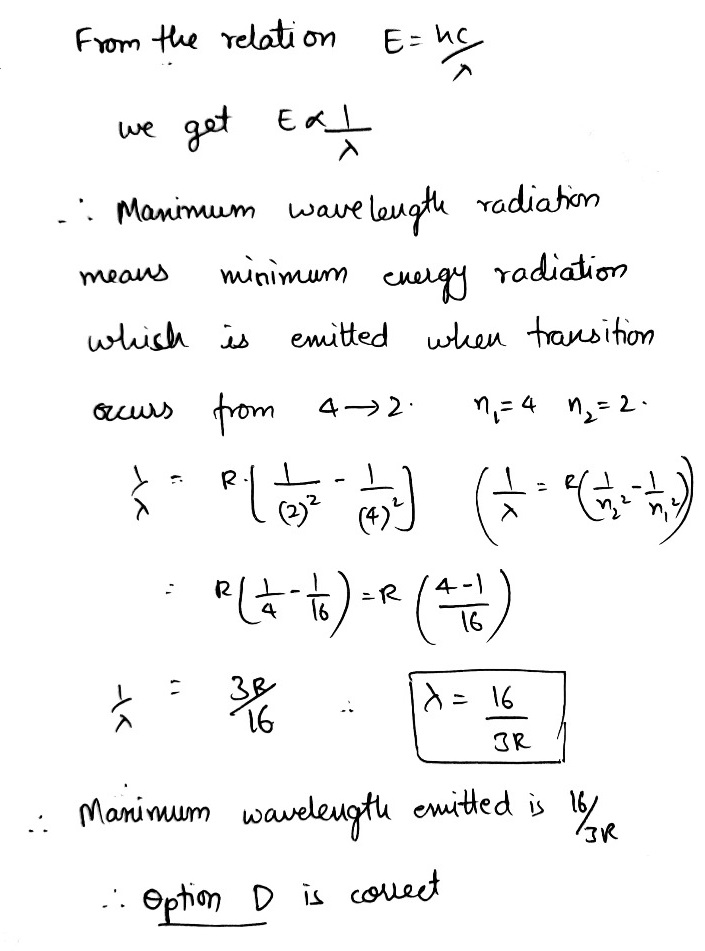 From the relation E = hc/λ
we get E ∝ 1/λ
∴ Maximum wavelength radiation
means minimum energy radiation
which is emitted when transition
occurs from 4→2. n₁=4 n₂=2.
1/λ = R·[1/(2)² - 1/(4)²] (1/λ = R(1/n₂² - 1/n₁²))
= R(1/4 - 1/16) = R(4-1/16)
1/λ = 3R/16 ∴ λ = 16/3R
∴ Maximum wavelength emitted is 16/3R
∴ Option D is correct